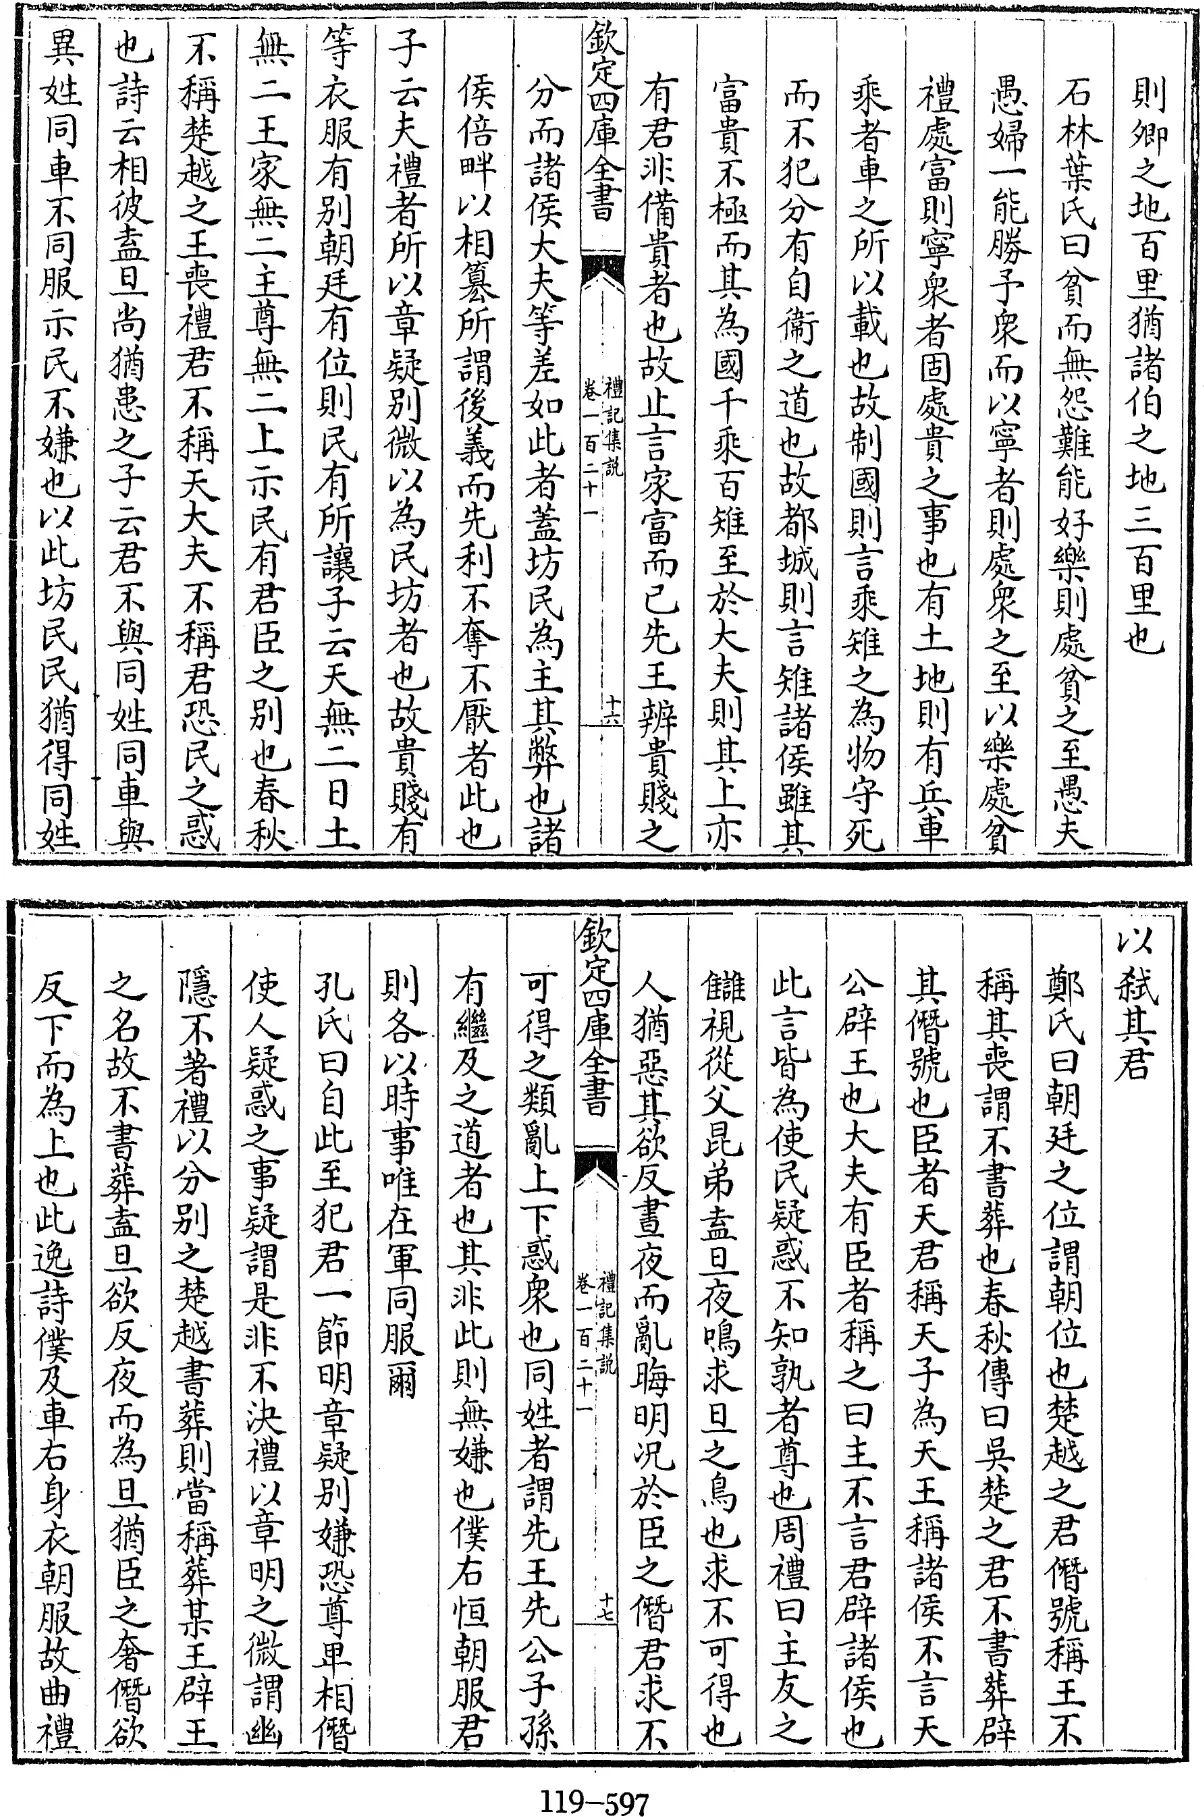 則卿之地百里猶諸伯之地三百里也
石林葉氏曰貧而無怨難能好樂則處貧之至愚夫
愚婦一能勝予衆而以寧者則處衆之至以樂處貧
禮處富則寧衆者固處貴之事也有土地則有兵車
乘者車之所以載也故制國則言乘雉之為物守死
而不犯分有自衞之道也故都城則言雉諸侯雖其
富貴不極而其為國千乘百雉至於大夫則其上亦
有君非備貴者也故止言家富而已先王辨貴賤之
欽定四庫全書
禮記集説
卷一百二十一
十六
分而諸侯大夫等差如此者蓋坊民為主其弊也諸
侯倍畔以相簒所謂後義而先利不奪不厭者此也
子云夫禮者所以章疑别微以為民坊者也故貴賤有
等衣服有别朝廷有位則民有所讓子云天無二日土
無二王家無二主尊無二上示民有君臣之别也春秋
不稱楚越之王喪禮君不稱天大夫不稱君恐民之惑
也詩云相彼盍旦尚猶患之子云君不與同姓同車與
異姓同車不同服示民不嫌也以此坊民民猶得同姓
以弑其君
鄭氏曰朝廷之位謂朝位也楚越之君僭號稱王不
稱其喪謂不書葬也春秋傳曰吳楚之君不書葬辟
其僭號也臣者天君稱天子為天王稱諸侯不言天
公辟王也大夫有臣者稱之曰主不言君辟諸侯也
此言皆為使民疑惑不知孰者尊也周禮曰主友之
讎視從父昆弟盍旦夜鳴求旦之鳥也求不可得也
人猶惡其欲反晝夜而亂晦明况於臣之僭君求不
欽定四庫全書
禮記集説
卷一百二十一
十七
可得之類亂上下惑衆也同姓者謂先王先公子孫
有繼及之道者也其非此則無嫌也僕右恒朝服君
則各以時事唯在軍同服爾
孔氏曰自此至犯君一節明章疑别嫌恐尊卑相僭
使人疑惑之事疑謂是非不決禮以章明之微謂幽
隱不著禮以分别之楚越書葬則當稱葬某王辟王
之名故不書葬盍旦欲反夜而為旦猶臣之奢僭欲
反下而為上也此逸詩僕及車右身衣朝服故曲禮
119-597